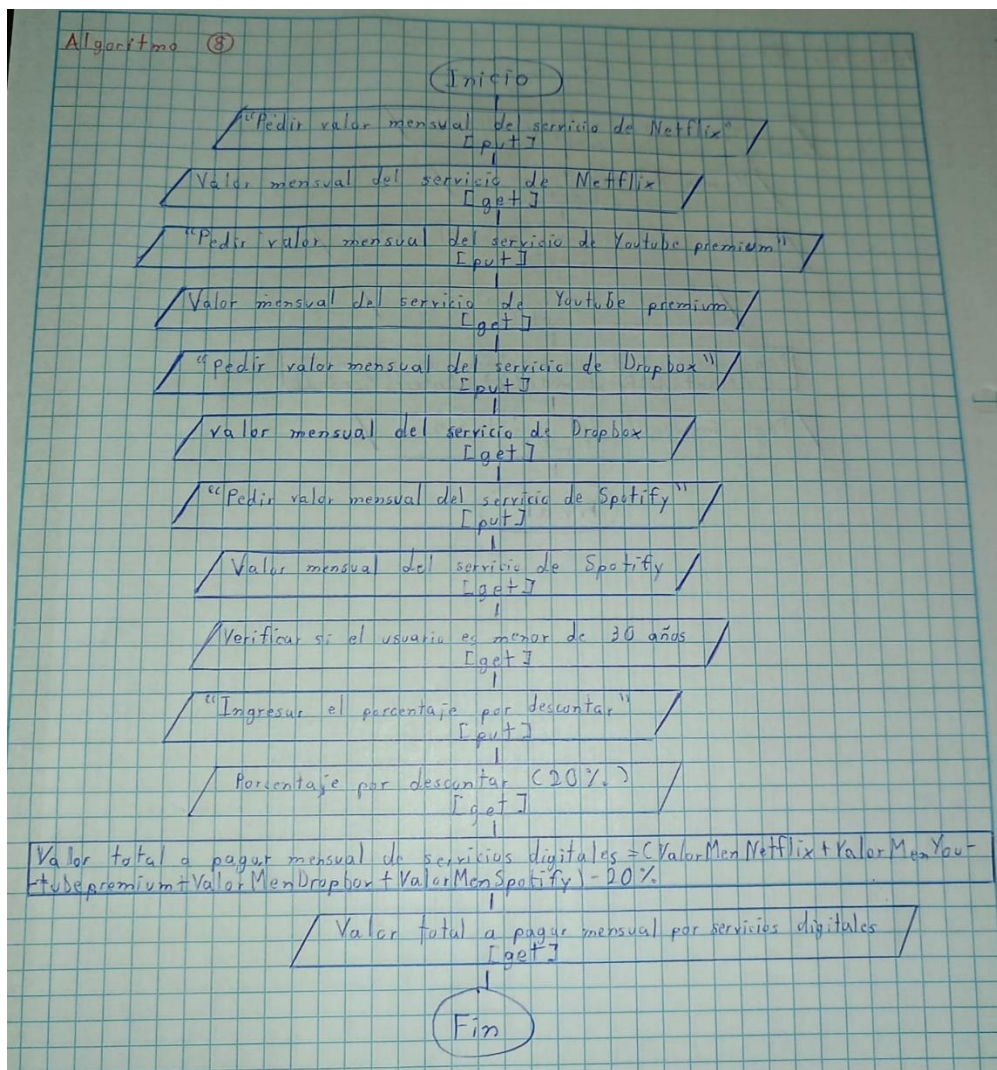 Algoritmo ⑧
Inicio
"Pedir valor mensual del servicio de Netflix"
[put]
Valor mensual del servicio de Netflix
[get]
"Pedir valor mensual del servicio de Youtube premium"
[put]
Valor mensual del servicio de Youtube premium
[get]
"Pedir valor mensual del servicio de Dropbox"
[put]
valor mensual del servicio de Dropbox
[get]
"Pedir valor mensual del servicio de Spotify"
[put]
Valor mensual del servicio de Spotify
[get]
Verificar si el usuario es menor de 30 años
[get]
"Ingresar el porcentaje por descontar"
[put]
Porcentaje por descontar (20%)
[get]
Valor total a pagar mensual de servicios digitales = (ValorMenNetflix + ValorMenYou-
tubepremium + ValorMenDropbox + ValorMenSpotify) - 20%
Valor total a pagar mensual por servicios digitales
[get]
Fin